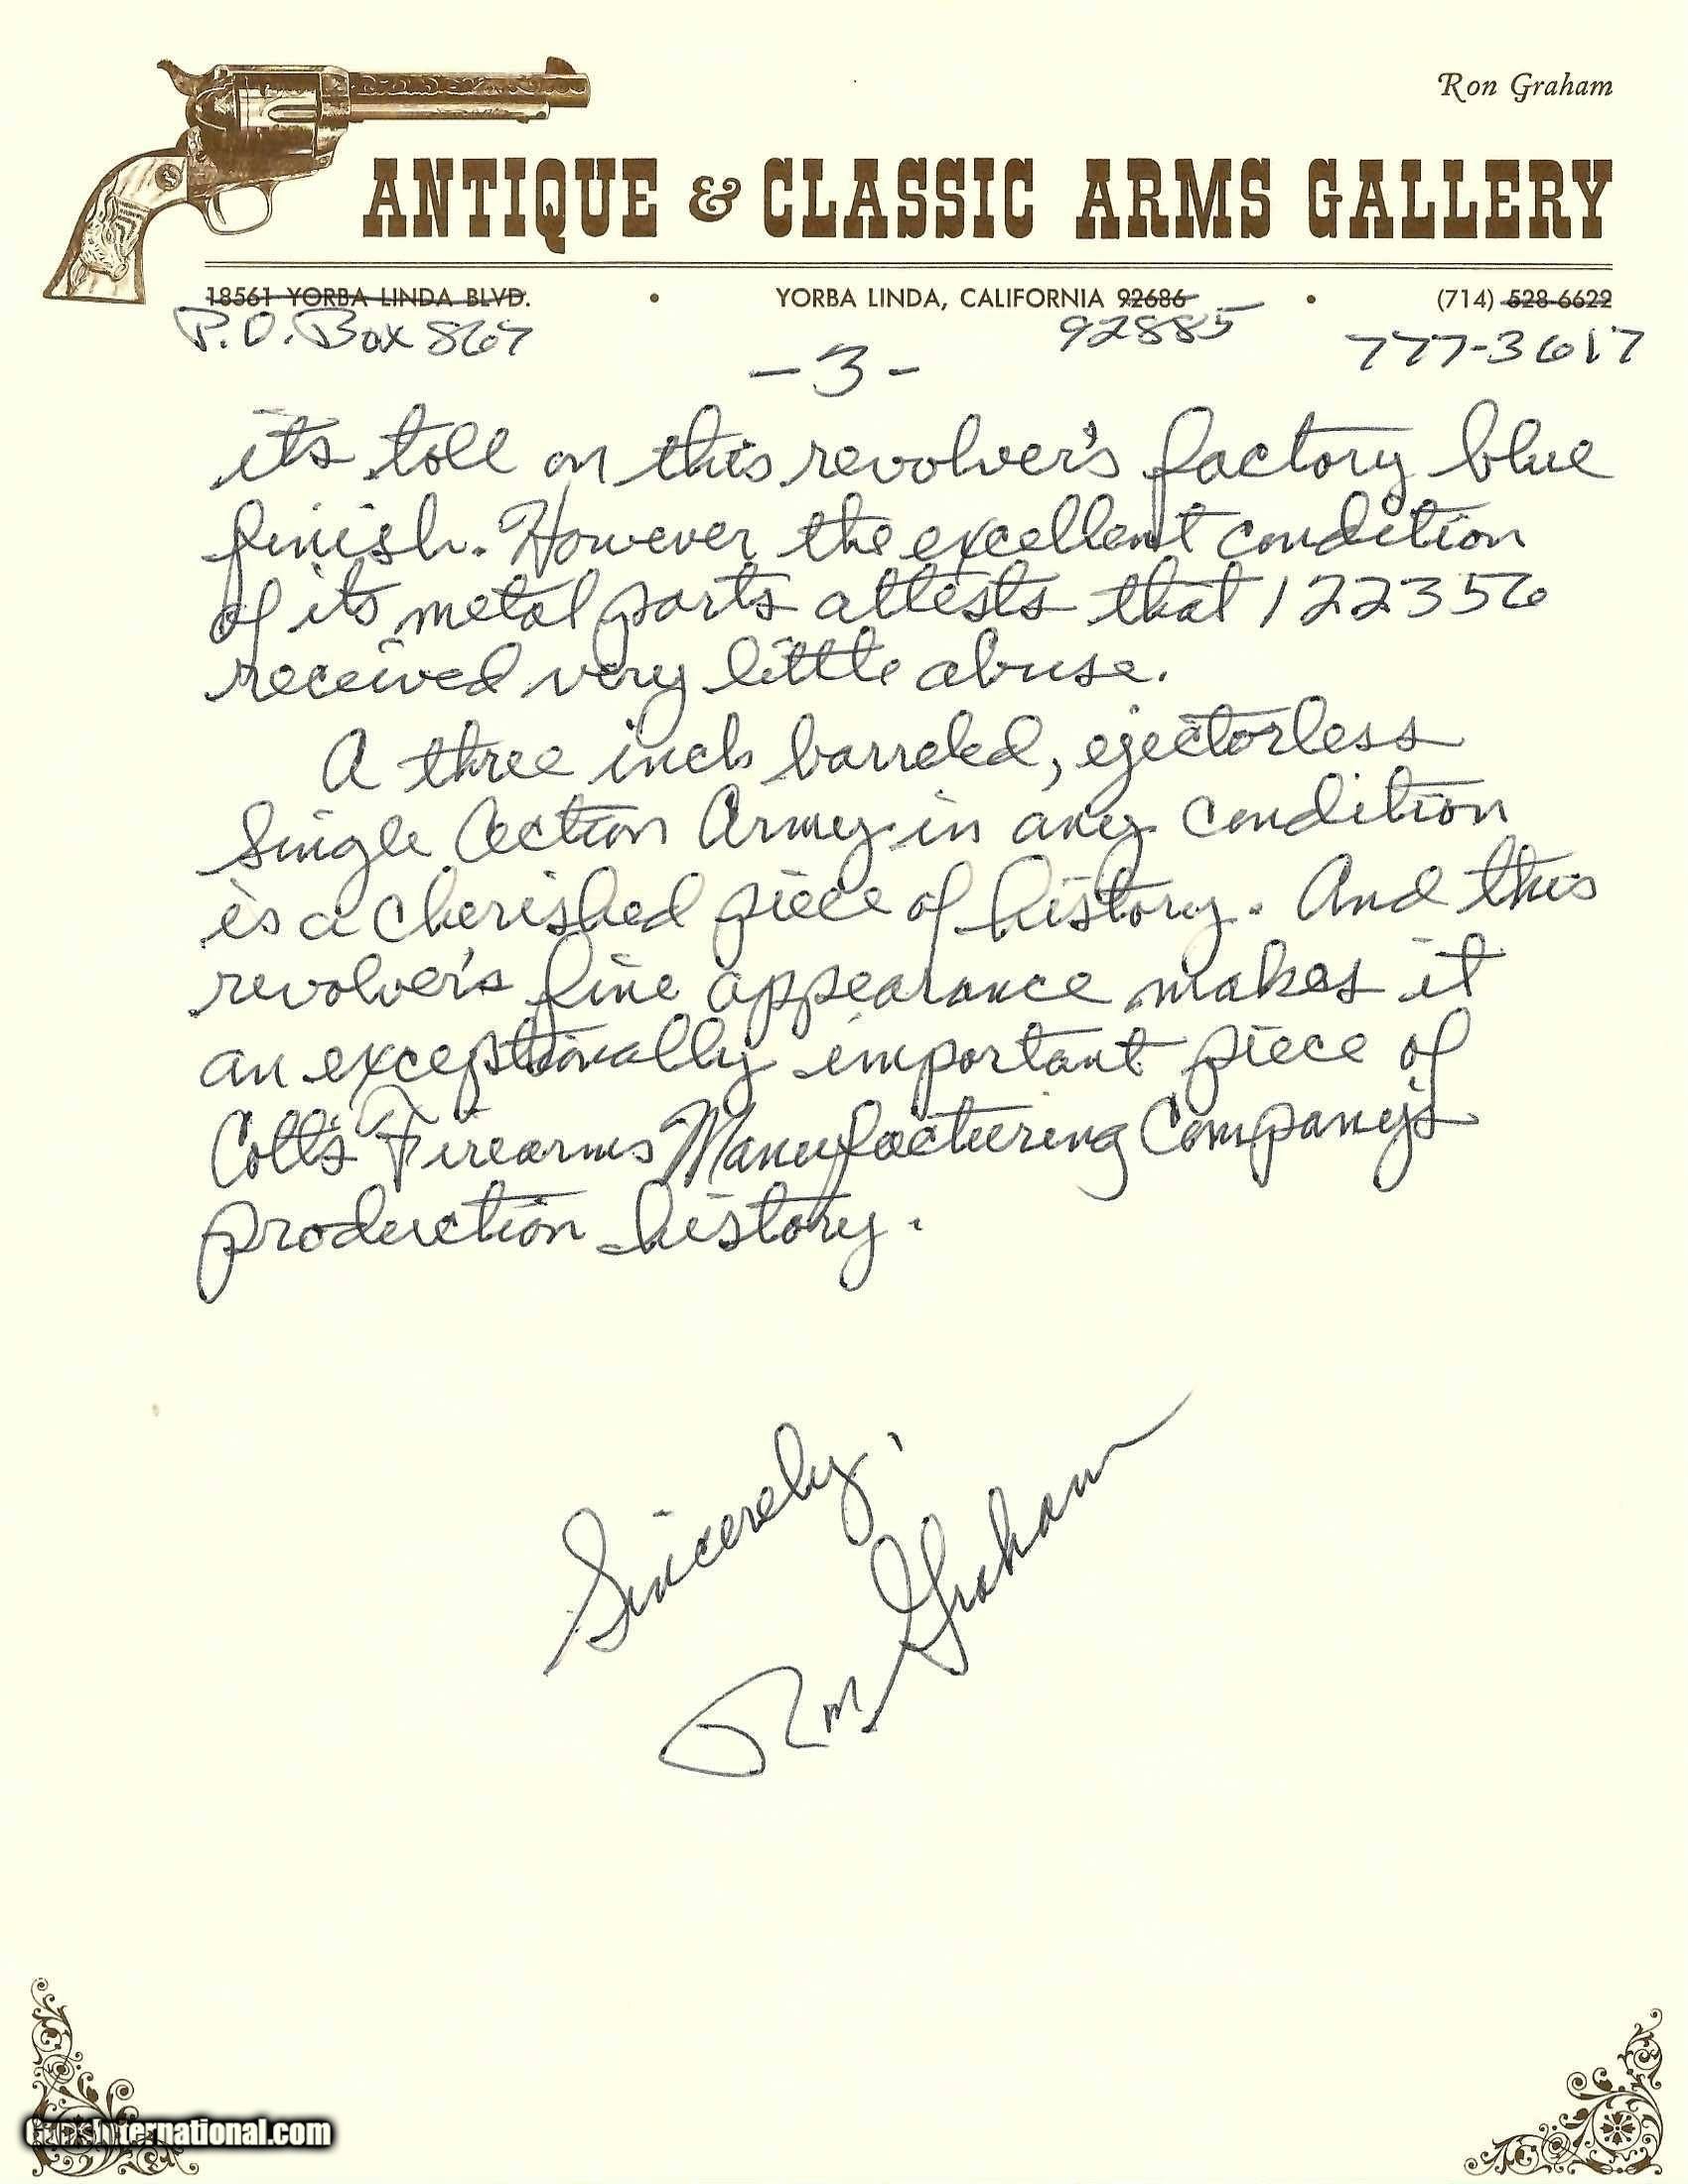 Ron Graham
ANTIQUE & CLASSIC ARMS GALLERY
18561 YORBA LINDA BLVD. • YORBA LINDA, CALIFORNIA 92686 • (714) 528-6622
P.O. Box 867 92885 777-3617
-3-
its toll on this revolver's factory blue
finish. However the excellent condition
of its metal parts attests that 122356
received very little abuse.
A three inch barreled, ejectorless
Single Action Army in any condition
is a cherished piece of history. And this
revolver's fine appearance makes it
an exceptionally important piece of
Colt's Firearms Manufacturing Company's
production history.
Sincerely,
Ron Graham
GunsInternational.com